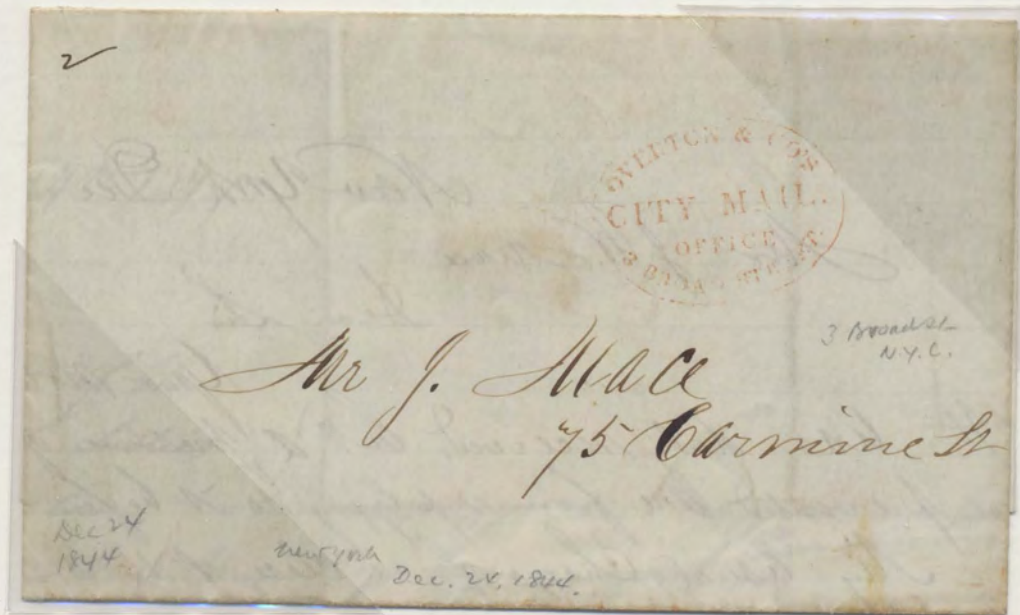 2
OVERTON & CO'S
CITY MAIL.
OFFICE
3 BROAD STREET.
3 Broad St
N.Y.C.
Mr J. Mace
75 Carmine St
Dec 24
1844
New York
Dec. 24, 1844.
New York Dec